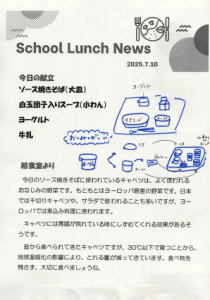 School Lunch News
2025.7.10
今日の献立
ソース焼きそば(大皿)
白玉団子入りスープ(小わん)
ヨーグルト
牛乳
ヨーグルト
給食室より
今日のソース焼きそばに使われているキャベツは、よく使われる
おなじみの野菜です。もともとはヨーロッパ原産の野菜です。日本
では千切りキャベツや、サラダで使われることも多いですが、ヨー
ロッパでは煮込み料理に使われます。
キャベツには胃腸が荒れている時にしずめてくれる効果があるそ
うです。
昔から食べられてきたキャベツですが、30℃以下で育つことから、
地球温暖化の影響により、とれる量が減ってきています。食べ物を
残さず、大切に食べましょうね。